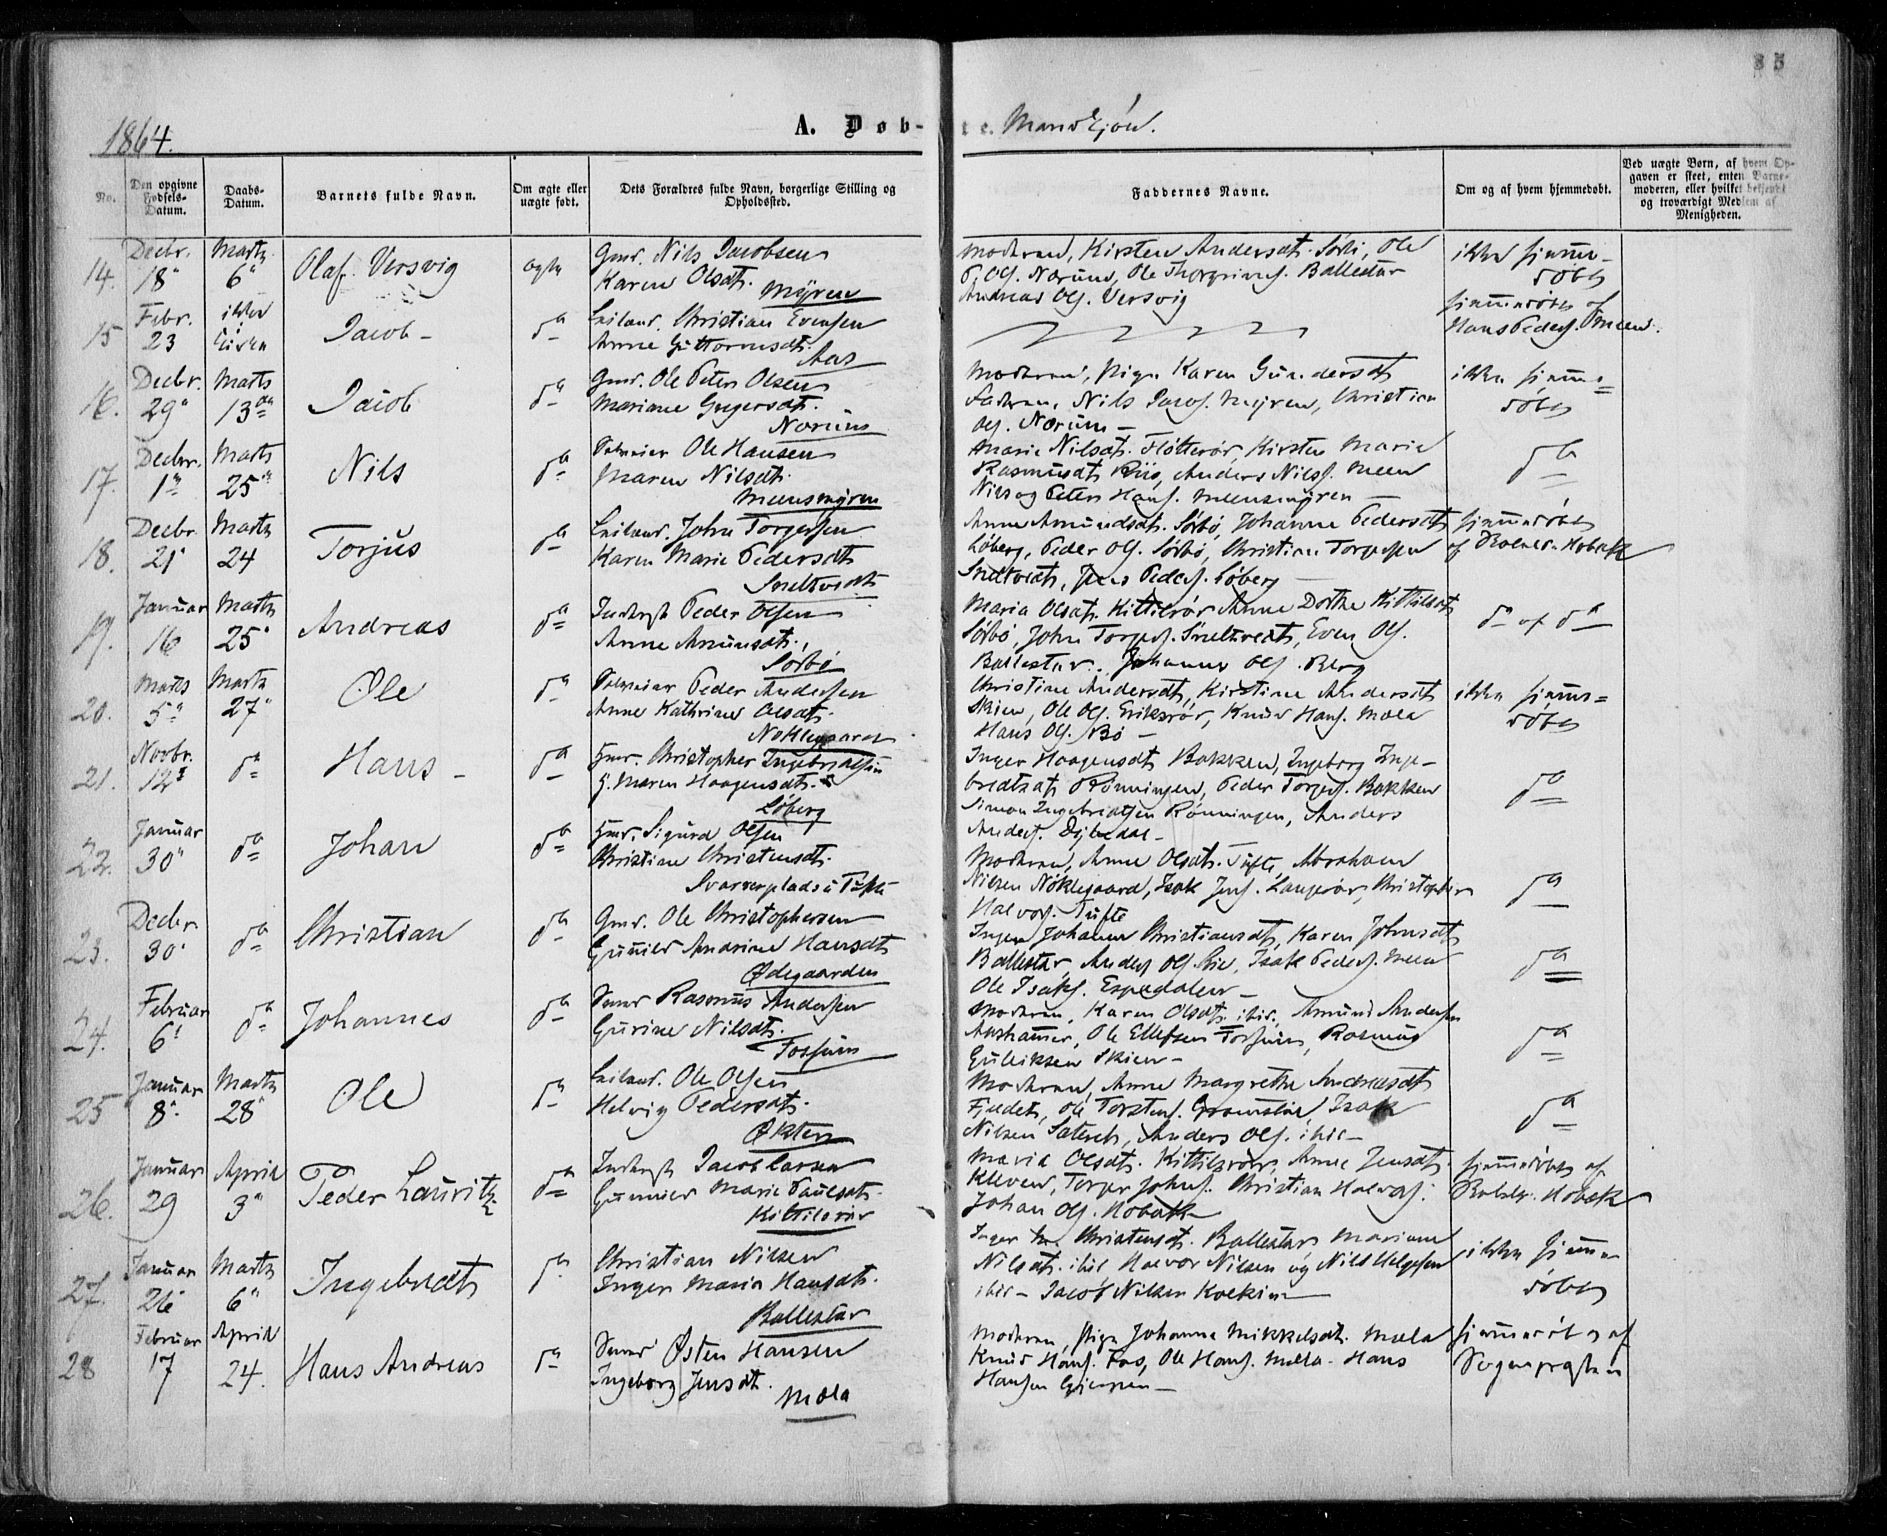 85
1864.
A. Døb-
te. Mandkjøn.
No.
Den opgivne Fødsels-Datum.
Daabs-Datum.
Barnets fulde Navn.
Om ægte eller uægte født.
Dets Forældres fulde Navn, borgerlige Stilling og Opholdssted.
Faddernes Navne.
Om og af hvem hjemmedøbt.
Ved uægte Børn, af hvem Opgaven er skeet, enten Barnemoderen, eller hvilket bekjendt og troværdigt Medlem af Menigheden.
14. Decbr. 18 Marts 6 Olaf Versvig ægte
Gmd. Nils Jacobsen
Karen Olsdt. Myren
Moderen, Kirsten Andersdt. Ole
Ols. Nørum, Ole Ballestar
Andreas Ols. Versvig
ikke hjemmedøbt
15 Febr. 23 ikke Jacob do
Leiland. Christian Evensen
Anne Guttormsdt.
Aas
hjemmedøbt af
Hans Peders. Meen.
16. Decbr. 29 Marts 13de Jacob do
Gmd. Ole Peter Olsen
Mariane Gregersdt.
Nørum
Moderen, Pige Karen Gundersdt
Faderen, Nils Jacos. Myren, Christian
Ols. Nørum
ikke hjemmedøbt
17. Decbr. 1 Marts 25 Nils do
Ole Hansen
Maren Nilsdt.
Meensmyren
Marie Nilsdt. Fløtterør, Kirsten Marie
Rasmusdt Riis, Anders Nilss. Meen
Nils og Peter Hans. Meensmyren
do
18. Decbr 21 Marts 24 Torjus do
Leiland. John Torgersen
Karen Marie Pedersdt
Sneltvedt
Anne Amundsdt. Sørbø, Johanne Pedersdt
Løberg, Peder Ols. Sørbø, Christian Torgersen
Sneltvedt, Jens Peders. Løberg
hjemmedøbt
af Hobæk
19. Januar 16 Marts 25 Andreas do
Inderst Peder Olsen
Anne Amundsdt.
Sørbø
Maria Olsdt. Kittilrør Anne Dorthe Kittilsdt
Sørbø, John Torges. Sneltvedt, Even Ols.
Ballestar. Johannes Ols. Berg
do af do
20. Marts 5 Marts 27 Ole do
Peder Andersen
Anne Kathrine Olsdt.
Nøklegaard
Christine Andersdt, Kirstine Andersdt
Skien, Ole Ols. Eriksrør, Knud Hans. Mæla
Hans Ols. Bø
ikke hjemmedøbt
21. Novbr. 12 do Hans do
Gmd. Christopher Ingebretsen
Maren Haagensdt.
Løberg
Inger Haagensdt Bakken, Ingeborg Ingebretsdt
Rønningen, Peder Torges. Bakken
Simon Ingebretsen Rønningen, Anders
Anders. Dybedal
do
22. Januar 30 do Johan do
Gmd. Sigurd Olsen
Christine Christensdt.
Svarverplads u Tufte
Moderen, Anne Olsdt. Tufte, Abraham
Nielsen Nøklegaard, Isak Jens. Langerør, Christopher
Halvors. Tufte
do
23. Decbr 30 do Christian do
Gmd. Ole Christophersen
Gunild Andrine Hansdt
Ødegaarden
Inger Johanne Christiansdt, Karen Johnsdt
Ballestar, Anders Ols. Lie, Isak Peders. Meen
Ole Isaks. Espedalen
do
24. Februar 6 do Johannes do
Rasmus Andersen
Gurine Nilsdt.
Fossum
Moderen, Karen Olsdt. ibid., Amund Andersen
Ole Ellefsen Fossum, Rasmus
Gulliksen Skien
do
25 Januar 8 Marts 28 Ole do
Leiland. Ole Olsen
Helvig Pedersdt.
Økter
Moderen, Anne Margrethe Andreasdt
Fjeldet, Ole Torstens. Isak
Nilsen Sætret, Anders Ols. ibid
do
26. Januar 29 April 3 Peder Lauritz do
Inderst Jacob Larsen
Gunnild Marie Paulsdt.
Kittilsrør
Maria Olsdt. Kittilsrør, Anne Jensdt.
Kleven, Torger Johns. Christian Halvors.
Johan Ols. Hobæk
hjemmedøbt af
Hobæk
27. Januar 26 Marts 6 Ingebredt do
Christian Nilsen
Inger Maria Hansdt.
Ballestar
Inger Christensdt. Ballestar, Mariane
Nilsdt. ibid Halvor Nilsen og Nils Helgesen
ibid - Jacob Nilsen Kolkinn
ikke hjemmedøbt
28 Februar 17 April 24. Hans Andreas do
Østen Hansen
Ingeborg Jensdt.
Mæla
Moderen, Pige Johanne Mikkelsdt. Mæla
Knud Hans. Fos, Ole Hans. Mæla. Hans
Hansen Gjerpen
hjemmedøbt af
Sognepresten